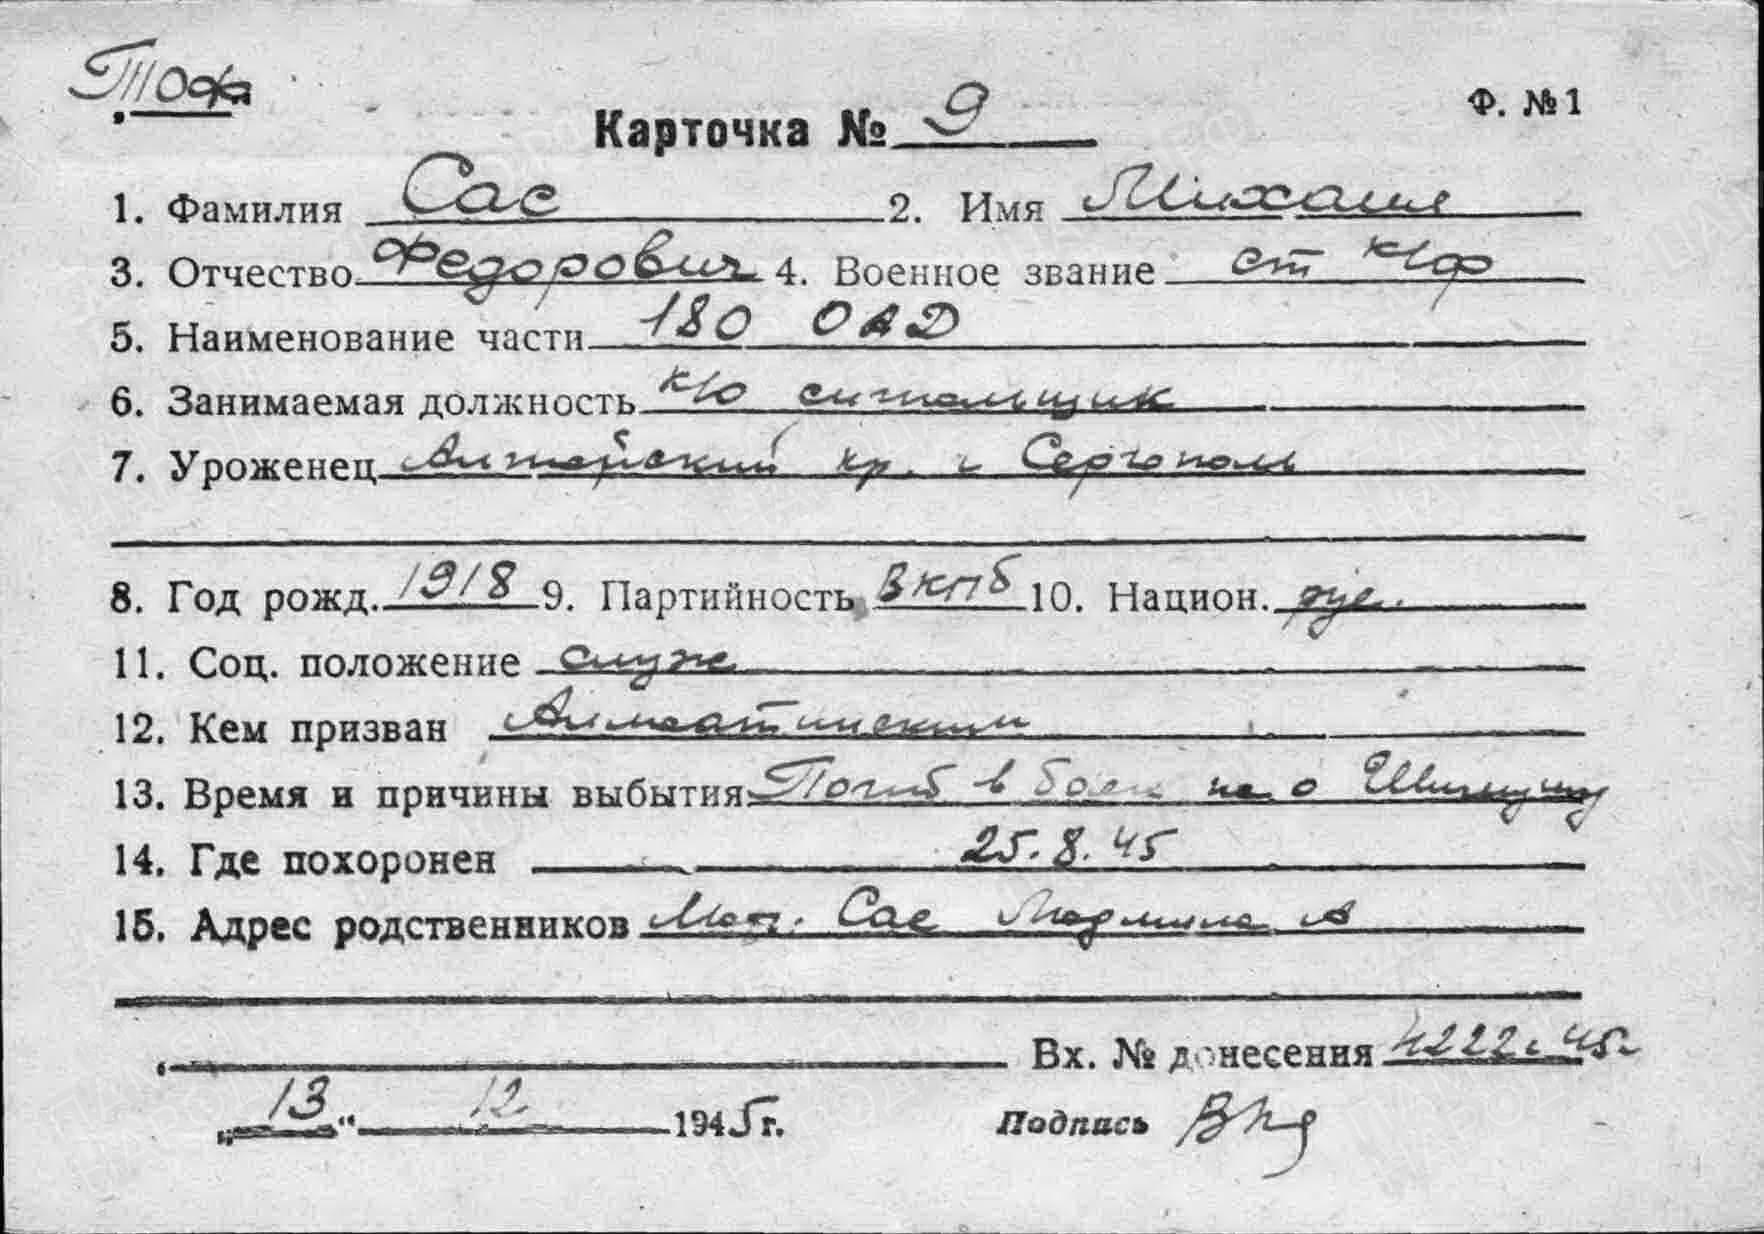 Тоф
Ф. №1
Карточка № 9
1. Фамилия Сас 2. Имя Михаил
3. Отчество Федорович 4. Военное звание ст к/оф
5. Наименование части 180 ОАД
6. Занимаемая должность к/о сигнальщик
7. Уроженец Алтайский кр. г Сергополь
8. Год рожд. 1918 9. Партийность ВКПб 10. Национ. рус.
11. Соц. положение служ
12. Кем призван Алмаатинским
13. Время и причины выбытия Погиб в боях на о Шимушу
14. Где похоронен 25.8.45
15. Адрес родственников Мат. Сас Людмила А
Вх. № донесения 4222с 45г
„13“ 12 1945 г. Подпись